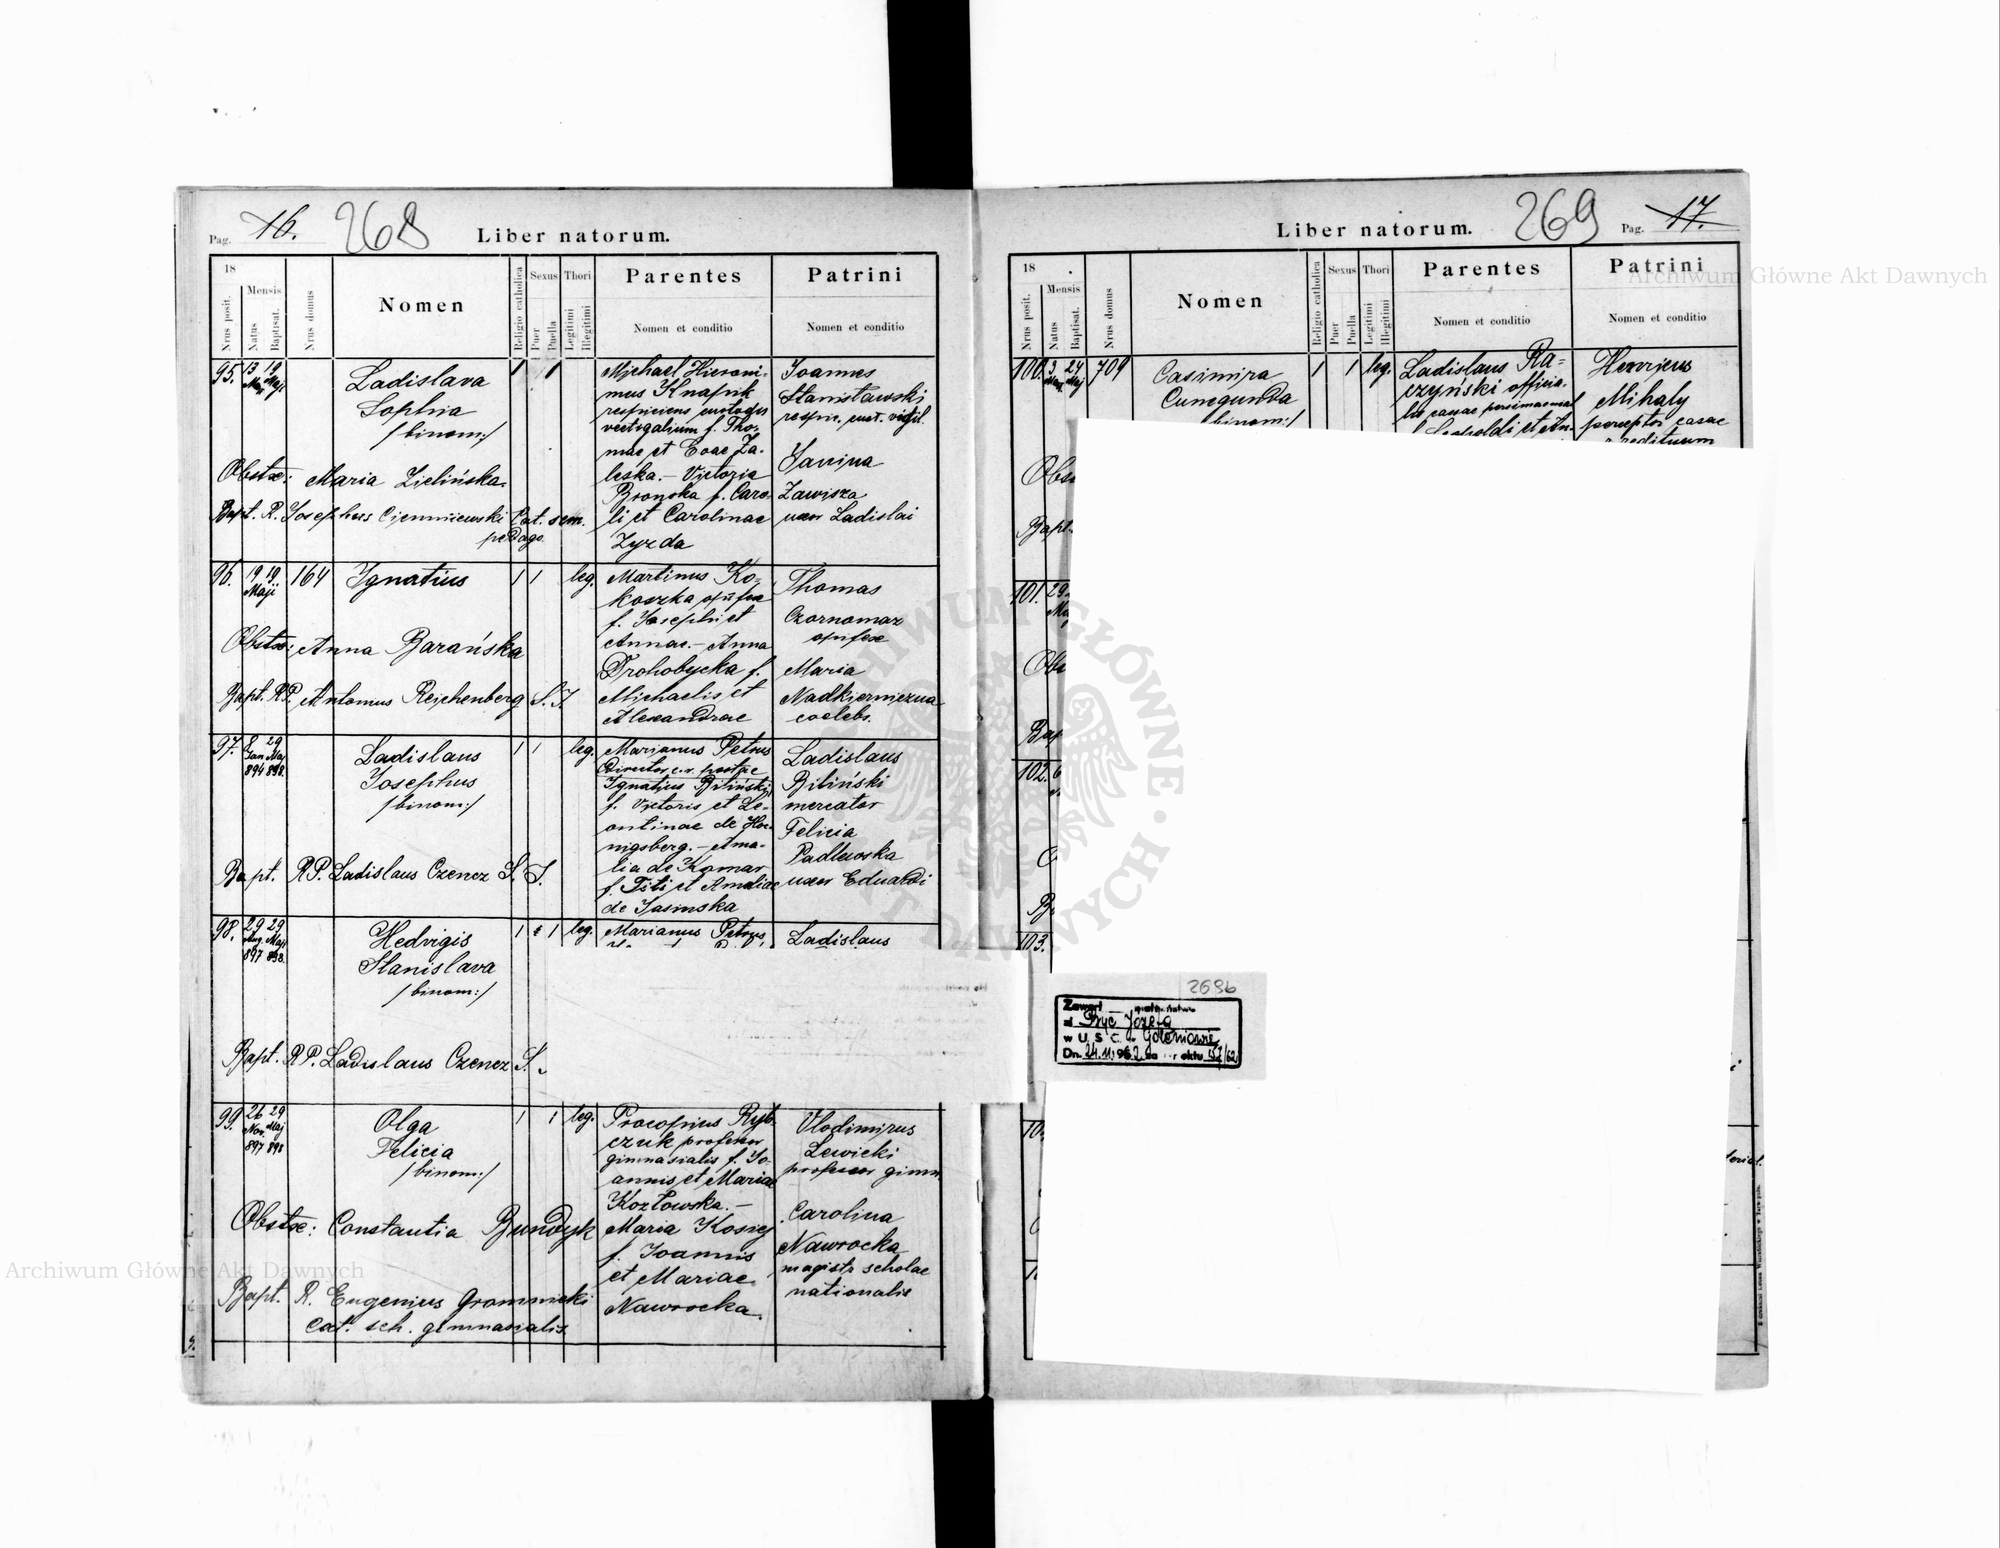 Pag. 16. 268 Liber natorum.
18
Nrus posit.
Mensis
Natus
Baptisat.
Nrus domus
Nomen
Religio catholica
Sexus
Puer
Puella
Thori
Legitimi
Illegitimi
Parentes
Nomen et conditio
Patrini
Nomen et conditio
95. 13 19 Ladislava 1 1 Michael Hieroni- Joannes
Maji Sophia mus Knapik Stanisławski
/binom:/ respiciens custodis
vectigalium f. Tho-
mae et Evae Za- Janina
Obstx: Maria Zielińska. leska. - Victoria Zawisza
Bronska f. Caro-
Bapt. R. Josephus Ciemniewski Cat. sem. li et Carolinae uxor Ladislai
pedago. Zyzda
96. 19 19 164 Ignatius 1 1 leg. Martinus Ko- Thomas
Maji koszka opifex Czornomaz
f. Josephi et opifex
Obstx: Anna Barańska Annae. - Anna
Drohobycka f. Maria
Bapt. RP. Antonius Reichenberg S. J. Michaelis et Nadkierniczna
Alexandrae coelebs.
97. 8 29 Ladislaus 1 1 leg. Marianus Petrus Ladislaus
Jan Maj Josephus Director c. r. postae
894 898. /binom:/ Ignatius Biliński Biliński
f. Victoris et Le- mercator
ontinae de Hoe- Felicia
nigsberg. - Ama- Padlewska
Bapt. RP. Ladislaus Czencz S. J. lia de Komar uxor Eduardi
f. Titi et Amaliae
de Jasinska
98. 29 29 Hedvigis 1 1 leg. Marianus Petrus Ladislaus
Aug. Maji Stanislava
897 898. /binom:/
Bapt. RP. Ladislaus Czencz S.
99. 26 29 Olga 1 1 leg. Procopius Ryb- Vlodimirus
Nov. Maj Felicia czuk professor Lewicki
897 898 /binom:/ gimnasialis f. Jo- professor gimn.
annis et Mariae
Kozłowska. - Carolina
Obstx: Constantia Bundyk Maria Kosiej Nawrocka
f. Joannis magistr scholae
et Mariae nationalis
Bapt. R. Eugenius Gromnicki Nawrocka.
Cat. sch. gimnasialis.
Liber natorum. 269 Pag. 17.
18
Nrus posit.
Mensis
Natus
Baptisat.
Nrus domus
Nomen
Religio catholica
Sexus
Puer
Puella
Thori
Legitimi
Illegitimi
Parentes
Nomen et conditio
Patrini
Nomen et conditio
100. 3 24 709 Casimira 1 1 leg. Ladislaus Ra- Henricus
Maj Cunegunda szyński officia- Mihaly
/binom:/ perceptor cassae
f. Leopoldi et An-
101. 29
102. 6
103.
269b
Zawarł małżeństwo
w U. S. C. w Goleniowie
Archiwum Główne Akt Dawnych
Archiwum Główne Akt Dawnych
ARCHIWUM GŁÓWNE AKT DAWNYCH